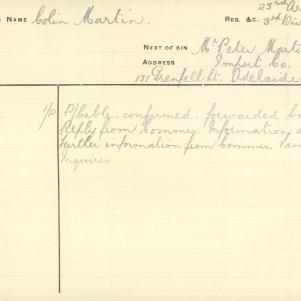 NAME Colin Martin. REG. &c. 23rd
3rd Div
NEXT OF KIN Mr Peter Marti
ADDRESS Import Co.
131 Grenfell St. Adelaide
P/Cable. confirmed. forwarded
Reply from Commrs. Information
Further information from Commrs.
Inquirer